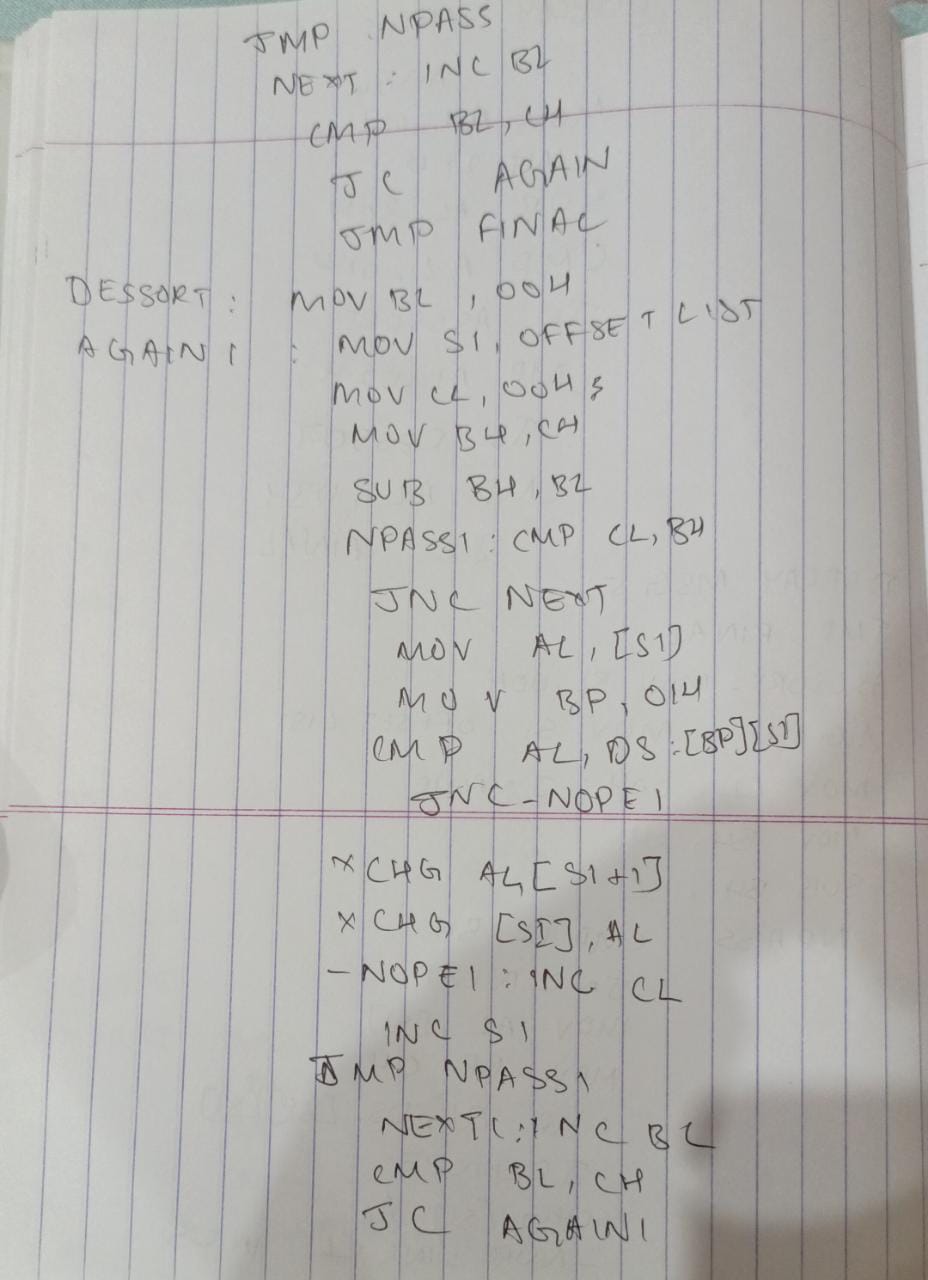 JMP NPASS
NEXT : INC BL
CMP BL, CH
JC AGAIN
JMP FINAL
DESSORT : MOV BL , 00H
AGAIN1 : MOV SI, OFFSET LIST
MOV CL, 00H ;
MOV BH, CH
SUB BH, BL
NPASS1 : CMP CL, BH
JNC NEXT
MOV AL, [SI]
MOV BP, 01H
CMP AL, DS:[BP][SI]
JNC-NOPE1
XCHG AL, [SI+1]
XCHG [SI], AL
-NOPE1 : INC CL
INC SI
JMP NPASS1
NEXT1 : INC BL
CMP BL, CH
JC AGAIN1